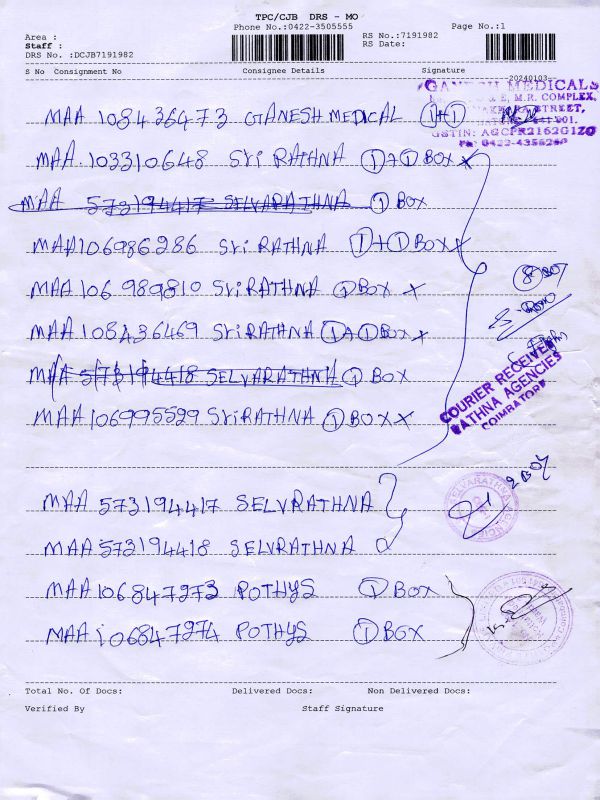 TPC/CJB DRS - MO
Phone No.:0422-3505555
Page No.:1
Area :
Staff :
DRS No. :DCJB7191982
RS No.:7191982
RS Date:
S No Consignment No Consignee Details Signature
20240103
MAA 108436473 GANESH MEDICAL 1+1
GANESH MEDICALS
M.R. COMPLEX,
STREET,
GSTIN: AGCPR2162G1ZO
Ph: 0422-4356260
MAA 103310648 Sri RATHNA 1+1 BOX x
MAA 573194417 SELVARATHNA 1 BOX
MAA106986286 Sri RATHNA 1+1 BOX x
MAA 106989810 Sri RATHNA 1 BOX x
8 BOX
MAA 108436469 Sri RATHNA 1+1 BOX x
MAA 573194418 SELVARATHNA 1 BOX
COURIER RECEIVED
RATHNA AGENCIES
COIMBATORE
MAA 106995529 Sri RATHNA 1 BOX x
2 BOX
MAA 573194417 SELVRATHNA
MAA 573194418 SELVRATHNA
MAA 106847273 POTHYS 1 BOX
MAA 106847274 POTHYS 1 BOX
Total No. Of Docs: Delivered Docs: Non Delivered Docs:
Verified By Staff Signature